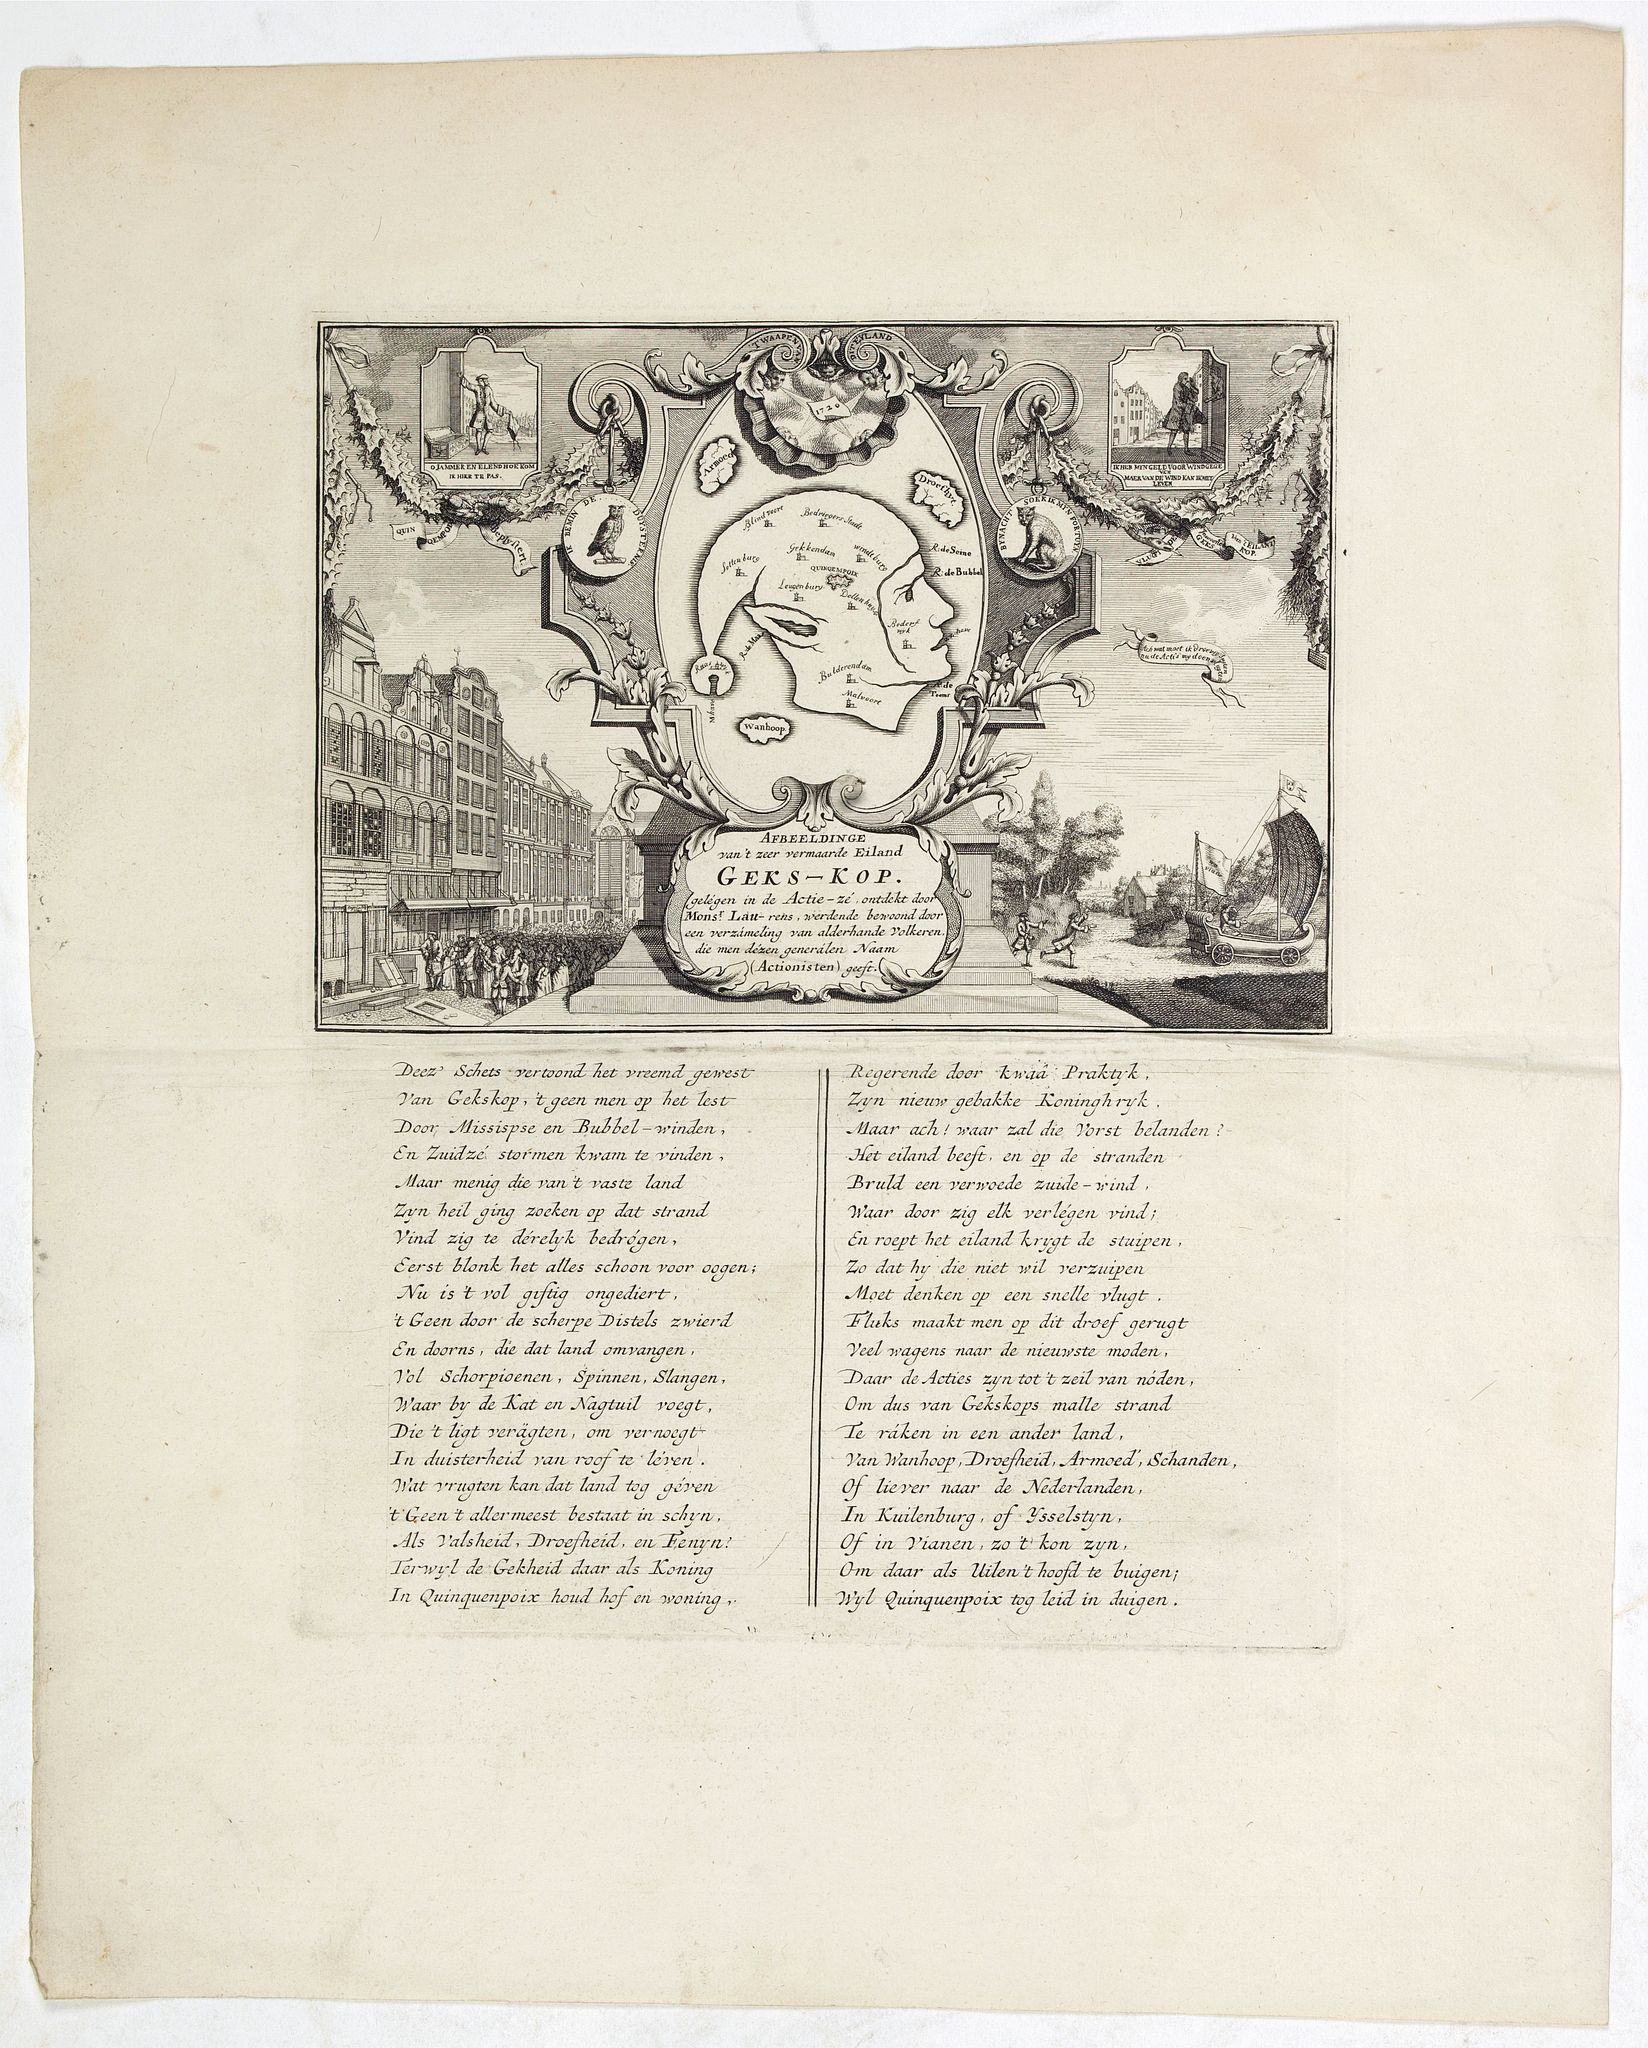 'T WAAPEN VAN DIT EYLAND
1720
O JAMMER EN ELEND HOE KOM
IK HIER TE PAS.
IK HEB MYN GELD VOOR WIND GEGE
VEN
MAER VAN DE WIND KAN IK NIET
LEVEN
QUIN
QEMPOIX
IK BEMIN DE DUYSTERNIS
BYNACHT SOEK IK MYN FORTUYN
GEKS
Van't EILAND
KOP.
Armoed
Droefhyt
Blindvoort
Bedriegers Stadt
R. de Seine
Gekkendam
windtburg
Sottenburg
QUINQEMPOIX
R. de Bubbel
Leugenburg
Bedens
ryk
Bulderendam
R. de
Teems
Malvoort
Wanhoop
AFBEELDINGE
van't zeer vermaarde Eiland
GEKS-KOP.
gelégen in de Actie-zé, ontdekt door
Monsr. Lau-rens, werdende bewoond door
een verzámeling van alderhande Volkeren,
die men dézen generálen Naam
(Actionisten) geeft.
Deez' Schets vertoond het vreemd gewest
Van Gekskop, 't geen men op het lest
Door Missispse en Bubbel-winden,
En Zuidzé stormen kwam te vinden,
Maar menig die van't vaste land
Zyn heil ging zoeken op dat strand
Vind zig te dérelyk bedrógen,
Eerst blonk het alles schoon voor oogen;
Nu is 't vol giftig ongediert,
't Geen door de scherpe Distels zwierd
En doorns, die dat land omvangen,
Vol Schorpioenen, Spinnen, Slangen,
Waar by de Kat en Nagtuil voegt,
Die 't ligt verägten, om vernoegt
In duisterheid van roof te léven.
Wat vrugten kan dat land tog géven
't Geen 't allermeest bestaat in schyn,
Als Valsheid, Droefheid, en Fenyn?
Terwyl de Gekheid daar als Koning
In Quinquenpoix houd hof en woning,
Regerende door kwaâ Praktyk,
Zyn nieuw gebakke Koninghryk.
Maar ach! waar zal die Vorst belanden?
Het eiland beeft, en op de stranden
Bruld een verwoede zuide-wind,
Waar door zig elk verlégen vind;
En roept het eiland krygt de stuipen,
Zo dat hy die niet wil verzuipen
Moet denken op een snelle vlugt.
Fluks maakt men op dit droef gerugt
Veel wagens naar de nieuwste moden,
Daar de Acties zyn tot 't zeil van nóden,
Om dus van Gekskops malle strand
Te ráken in een ander land,
Van Wanhoop, Droefheid, Armoed', Schanden,
Of liever naar de Nederlanden,
In Kuilenburg, of Ysselstyn,
Of in Vianen, zo 't kon zyn,
Om daar als Uilen 't hoofd te buigen;
Wyl Quinquenpoix tog leid in duigen.